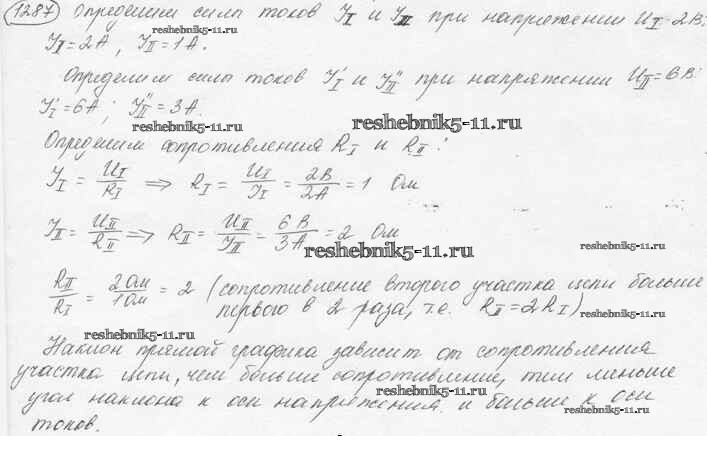 1287 Определим силы токов I_I и I_II при напряжении U_I = 2В:
reshebnik5-11.ru
I_I = 2А, I_II = 1А.
Определим силы токов I'_I и I''_II при напряжении U_II = 6В:
I'_I = 6А; I''_II = 3А.
reshebnik5-11.ru
reshebnik5-11.ru
Определим сопротивления R_I и R_II:
I_I = U_I/R_I ⟹ R_I = U_I/I_I = 2В/2А = 1 Ом
I_II = U_II/R_II ⟹ R_II = U_II/I_II = 6В/3А = 2 Ом
reshebnik5-11.ru
reshebnik5-11.ru
R_II/R_I = 2Ом/1Ом = 2 (сопротивление второго участка цепи больше
первого в 2 раза, т.е. R_II = 2R_I)
reshebnik5-11.ru
reshebnik5-11.ru
Наклон прямой графика зависит от сопротивления
участка цепи, чем больше сопротивление, тем меньше
reshebnik5-11.ru
угол наклона к оси напряжения и больше к оси
reshebnik5-11.ru
токов.